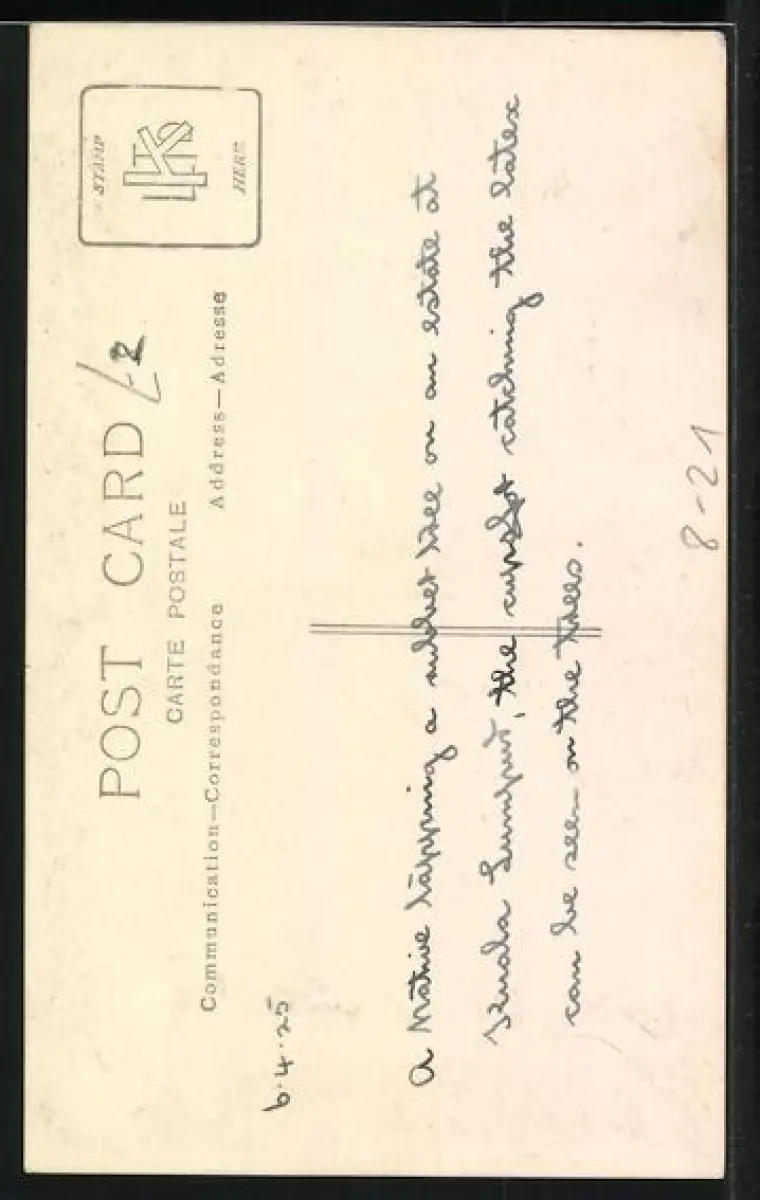 POST CARD
CARTE POSTALE
Communication—Correspondance
Address—Adresse
STAMP
HERE
6.4.25
A Native tapping a rubber tree on an estate at
Kuala Lumpur, the cups for catching the latex
can be seen on the trees.
8-21